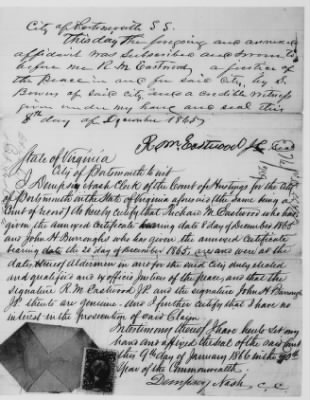 City of Portsmouth S.S.
This day the foregoing and annexed
affidavit was subscribed and sworn to
before me R M Eastwood a justice of
the Peace in and for said City, by S.
Bowers of said city and a credible witness
given under my hand and seal this
8th day of December 1865
R M Eastwood J.P. Seal
State of Virginia
City of Portsmouth to wit
I Dempsey Nash Clerk of the Court of Hustings for the City
of Portsmouth in the State of Virginia aforesaid (the same being a
Court of record) do hereby certify that Richard M. Eastwood who has
given the annexed Certificate bearing date 8 day of December 1865
and John H. Burroughs who has given the annexed Certificate
bearing date the 20 day of December 1865, are and were at the
date Alderman in and for the said City duly elected
and qualified and by office justices of the peace, and that the
signature R. M. Eastwood J.P. and the signature John H. Burroughs
J.P. thereto are genuine. And I further certify that I have no
interest in the prosecution of said Claim.
In testimony whereof I have hereto set my
hand and affixed the seal of the said Court
this 9th day of January 1866 in the 90th
Year of the Commonwealth.
Dempsey Nash, C. C.